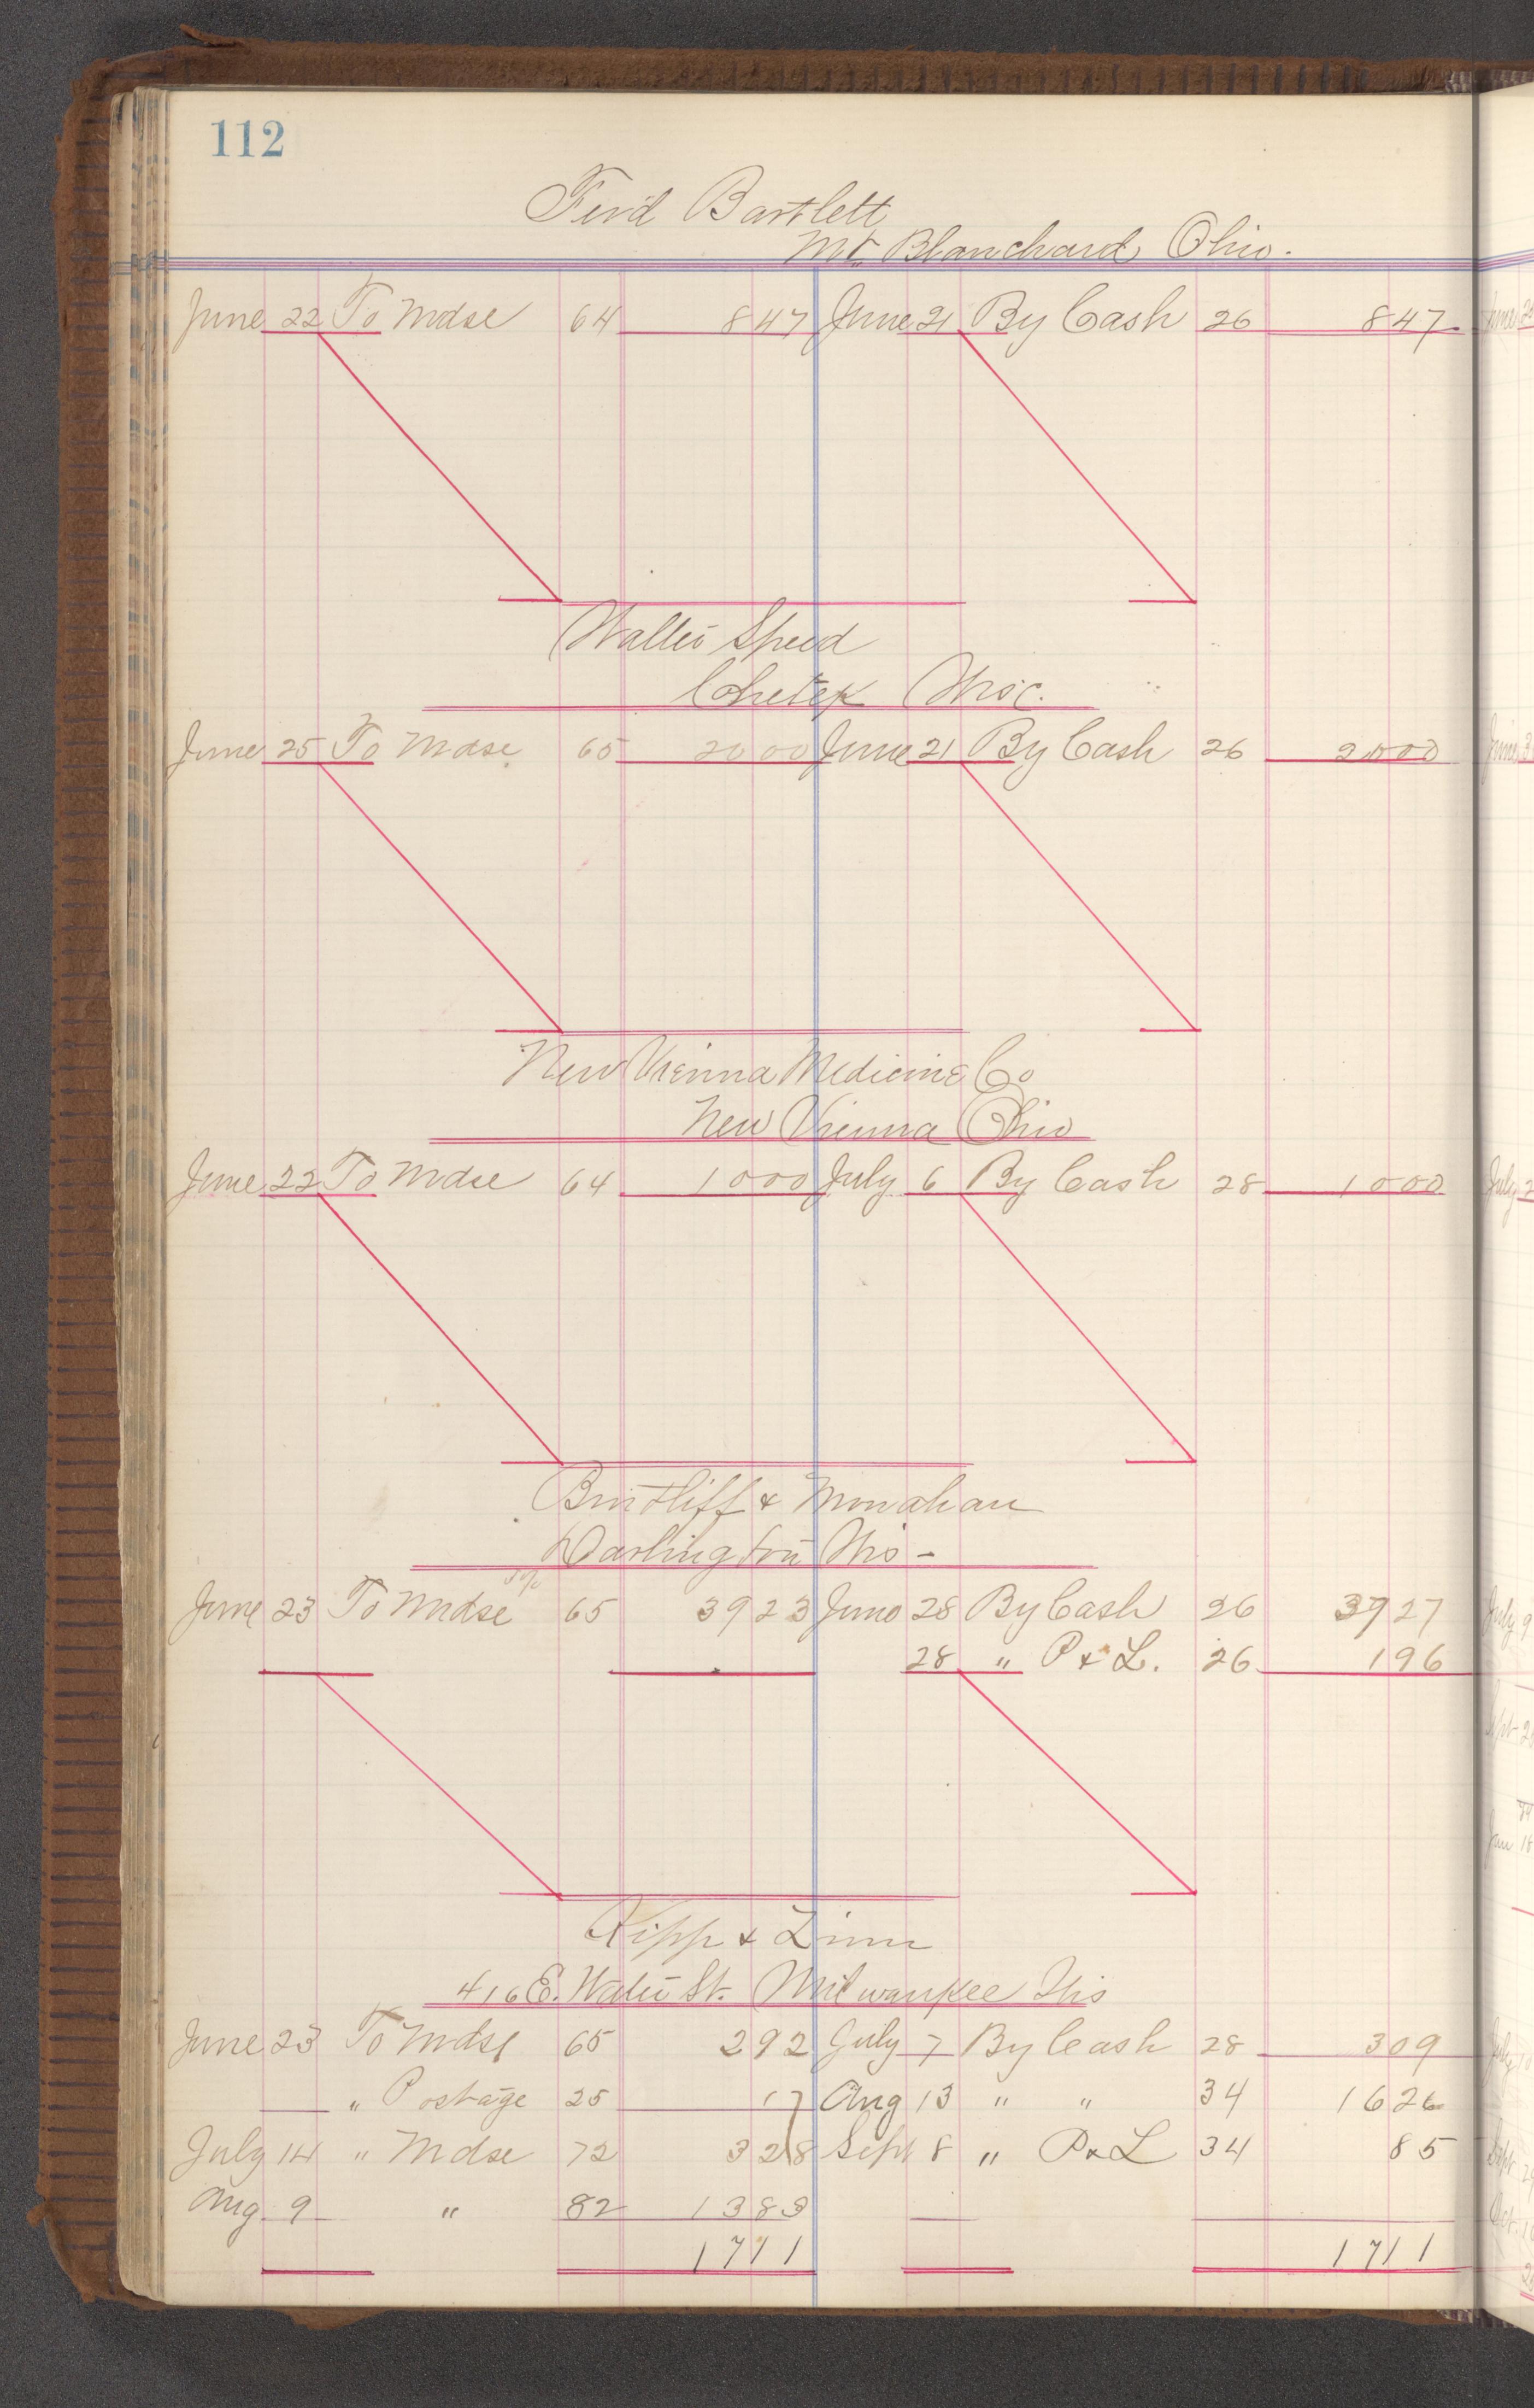 112
Ferd Bartlett
Mt. Blanchard, Ohio.
June 22 To Mdse 64 8 47 June 21 By Cash 26 8 47
Walter Speed
Chetek Wisc.
June 25 To Mdse 65 20 00 June 21 By Cash 26 20 00
New Vienna Medicine Co
New Vienna Ohio
June 22 To Mdse 64 10 00 July 6 By Cash 28 10 00
& Monahan
Darlington Wis -
June 23 To Mdse 65 39 23 June 28 By Cash 26 37 27
28 " P & L. 26 1 96
Kipp & Zinn
416 E. Water St. Milwaukee Wis
June 23 To Mdse 65 2 92 July 7 By Cash 28 3 09
" Postage 25 17 Aug 13 " " 34 16 26
July 14 " Mdse 72 3 28 Sept 8 " P & L 34 85
Aug 9 " 82 13 83
17 11 17 11